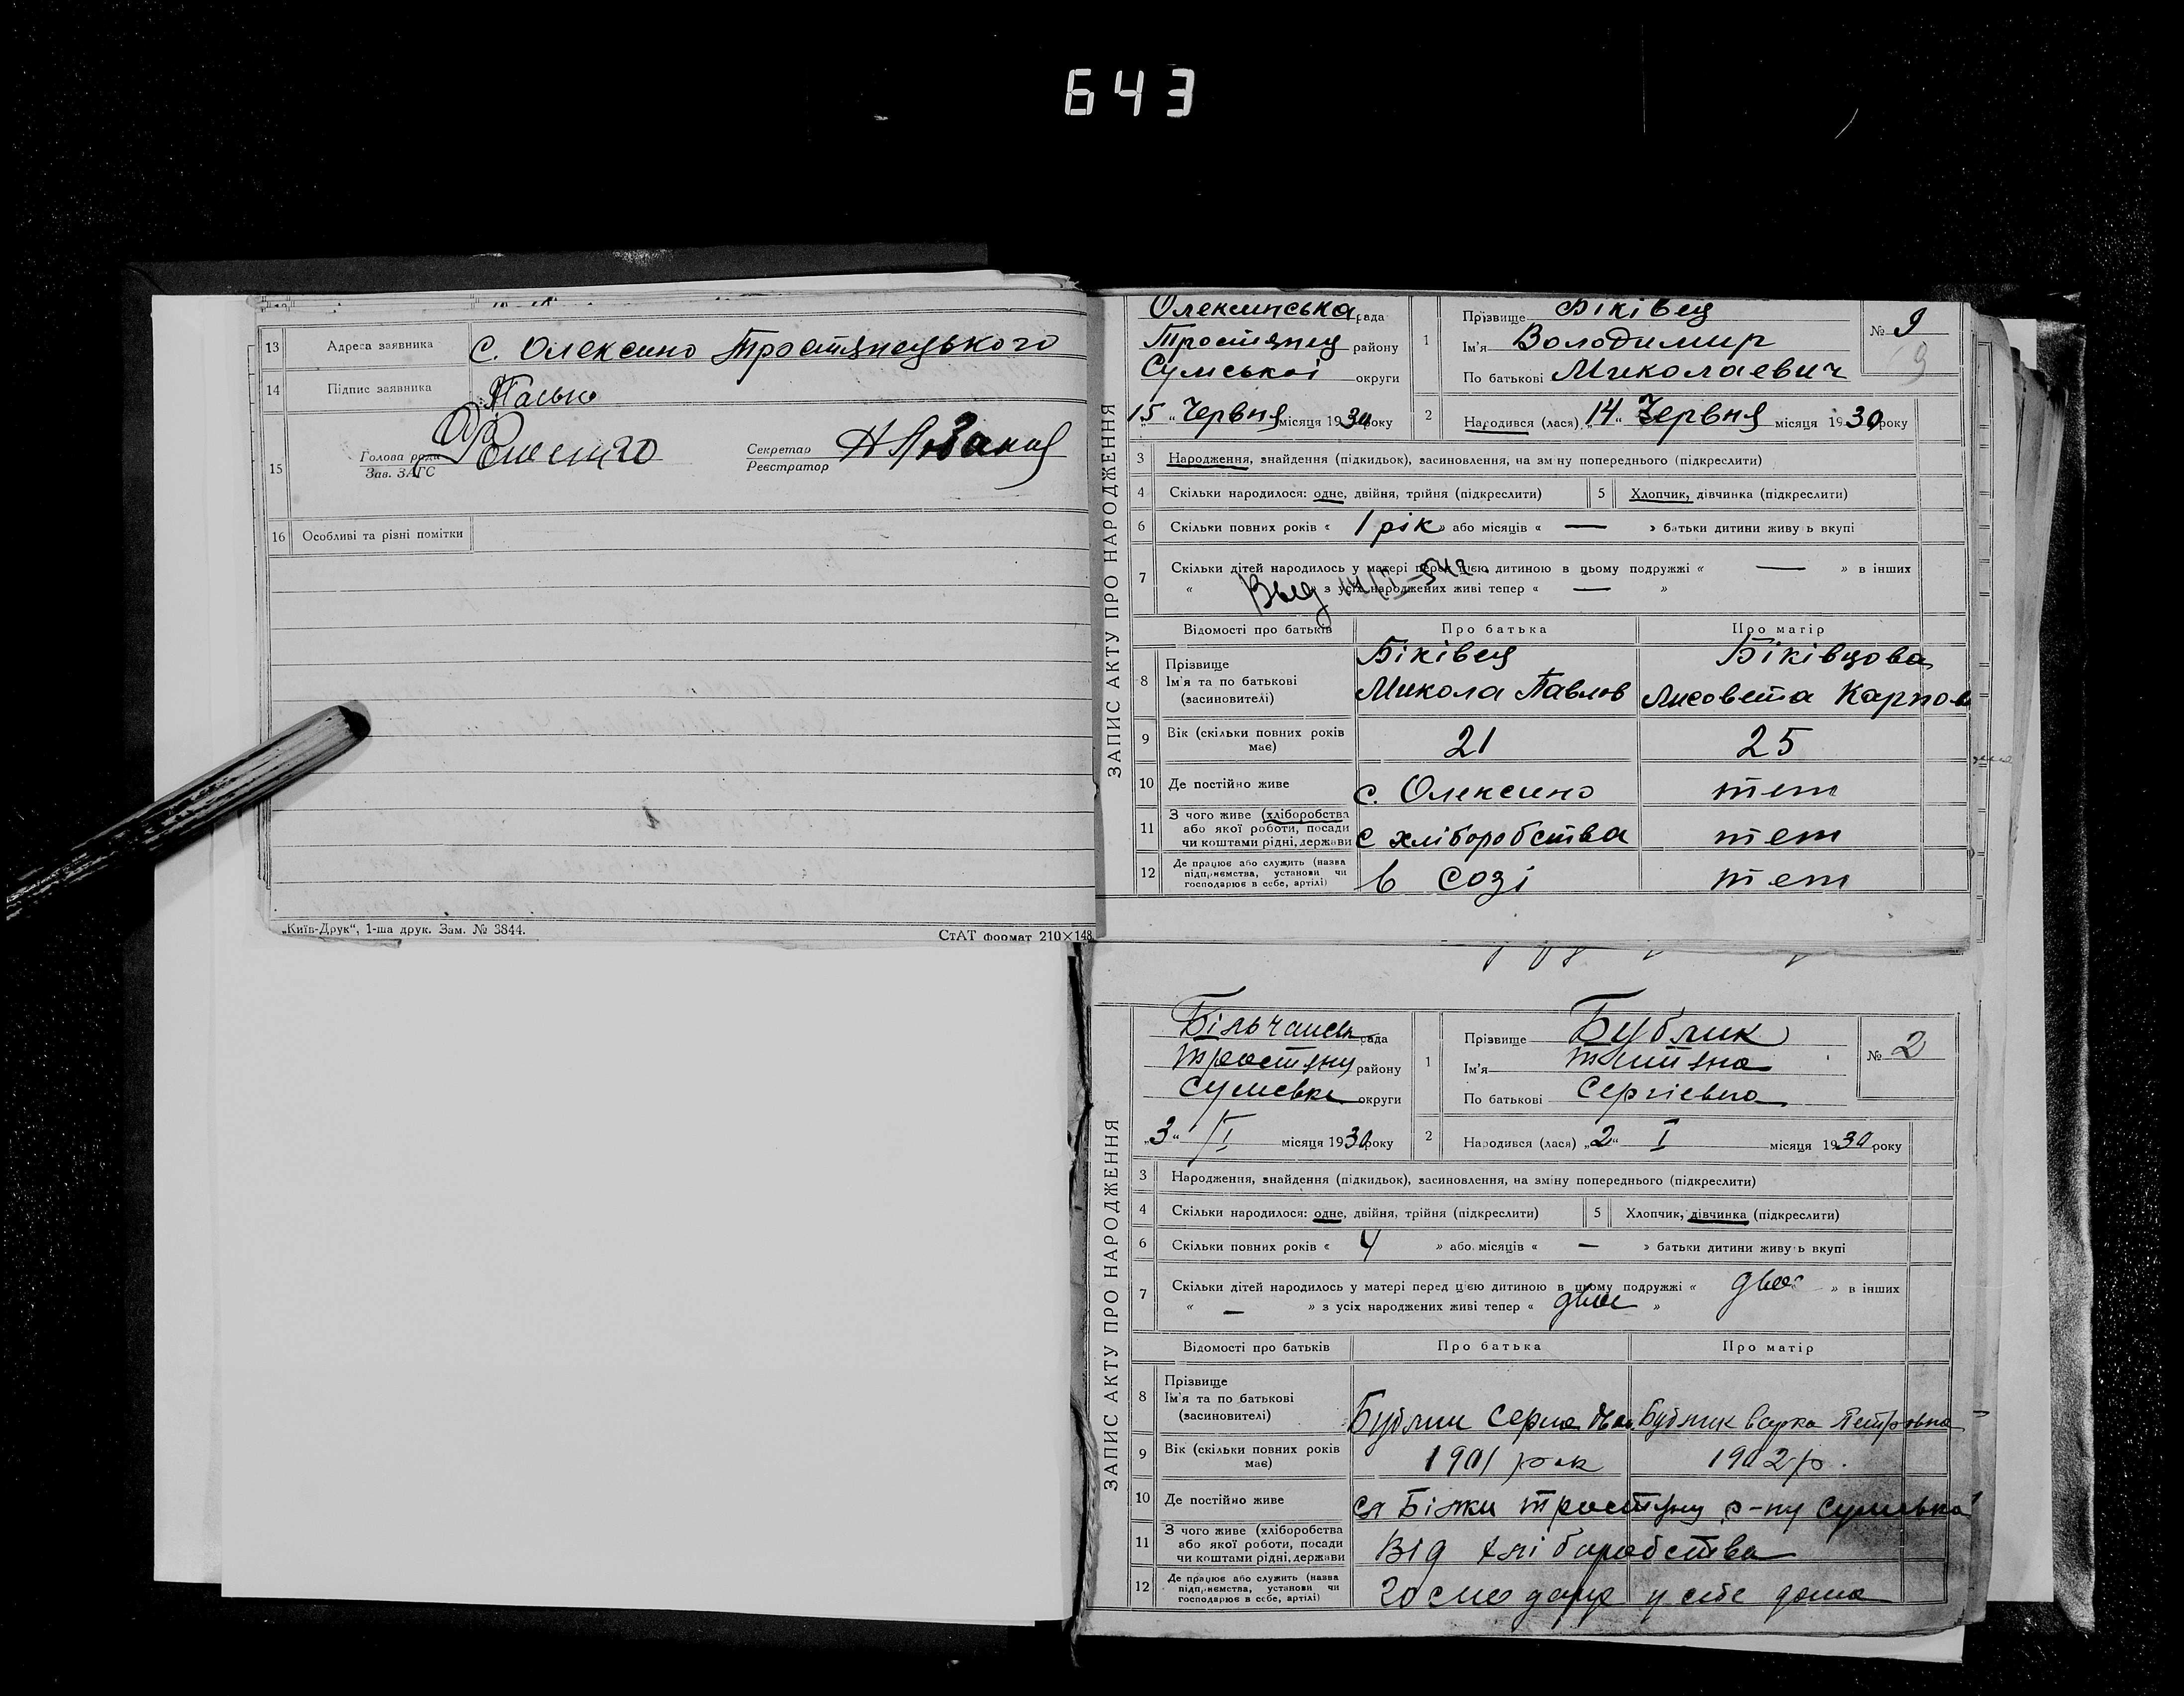 643
13 Адреса заявника с. Олексино Тростянецького
14 Підпис заявника Пасько
15 Голова ради Зав. ЗАГС Секретар Реєстратор
16 Особливі та різні помітки
„Київ-Друк“, 1-ша друк. Зам. № 3844. СтАТ формат 210×148
ЗАПИС АКТУ ПРО НАРОДЖЕННЯ
Олексинська рада
Тростянец району
Сумської округи
„15“ Червня місяця 1930 року
1 Прізвище Біківец
Ім'я Володимир
По батькові Миколаевич
№ 9
9
2 Народився (лася) „14“ Червня місяця 1930 року
3 Народження, знайдення (підкидьок), засиновлення, на зміну попереднього (підкреслити)
4 Скільки народилося: одне, двійня, трійня (підкреслити) 5 Хлопчик, дівчинка (підкреслити)
6 Скільки повних років « 1 рік » або місяців « — » батьки дитини живуть вкупі
7 Скільки дітей народилось у матері перед цією дитиною в цьому подружжі « — » в інших
« » з усіх народжених живі тепер « — »
Выд
Відомості про батьків Про батька Про матір
8 Прізвище Ім'я та по батькові (засновителі)
Біківец Біківцова
Микола Павлов Лисовета Карпов
9 Вік (скільки повних років має) 21 25
10 Де постійно живе с. Олексино теж
11 З чого живе (хліборобства або якої роботи, посади чи коштами рідні, держави с хліборобства теж
12 Де працює або служить (назва підприємства, установи чи господарює в себе, артілі) в созі теж
ЗАПИС АКТУ ПРО НАРОДЖЕННЯ
Більчанськ рада
Тростянц району
Сумськ округи
„3“ /I місяця 1930 року
1 Прізвище Бублик
Ім'я
По батькові Сергіевна
№ 2
2 Народився (лася) „2“ I місяця 1930 року
3 Народження, знайдення (підкидьок), засиновлення, на зміну попереднього (підкреслити)
4 Скільки народилося: одне, двійня, трійня (підкреслити) 5 Хлопчик, дівчинка (підкреслити)
6 Скільки повних років « 4 » або місяців « — » батьки дитини живуть вкупі
7 Скільки дітей народилось у матері перед цією дитиною в цьому подружжі « двоє » в інших
« — » з усіх народжених живі тепер « двоє »
Відомості про батьків Про батька Про матір
8 Прізвище Ім'я та по батькові (засиновителі)
Бублик Бублик Варка Петровна
9 Вік (скільки повних років має) 1901 рок 1902 р.
10 Де постійно живе сл Білки тростянц р-ну Сумсько
11 З чого живе (хліборобства або якої роботи, посади чи коштами рідні, держави Від хліборобства
12 Де працює або служить (назва підприємства, установи чи господарює в себе, артілі) господарує у себе дома